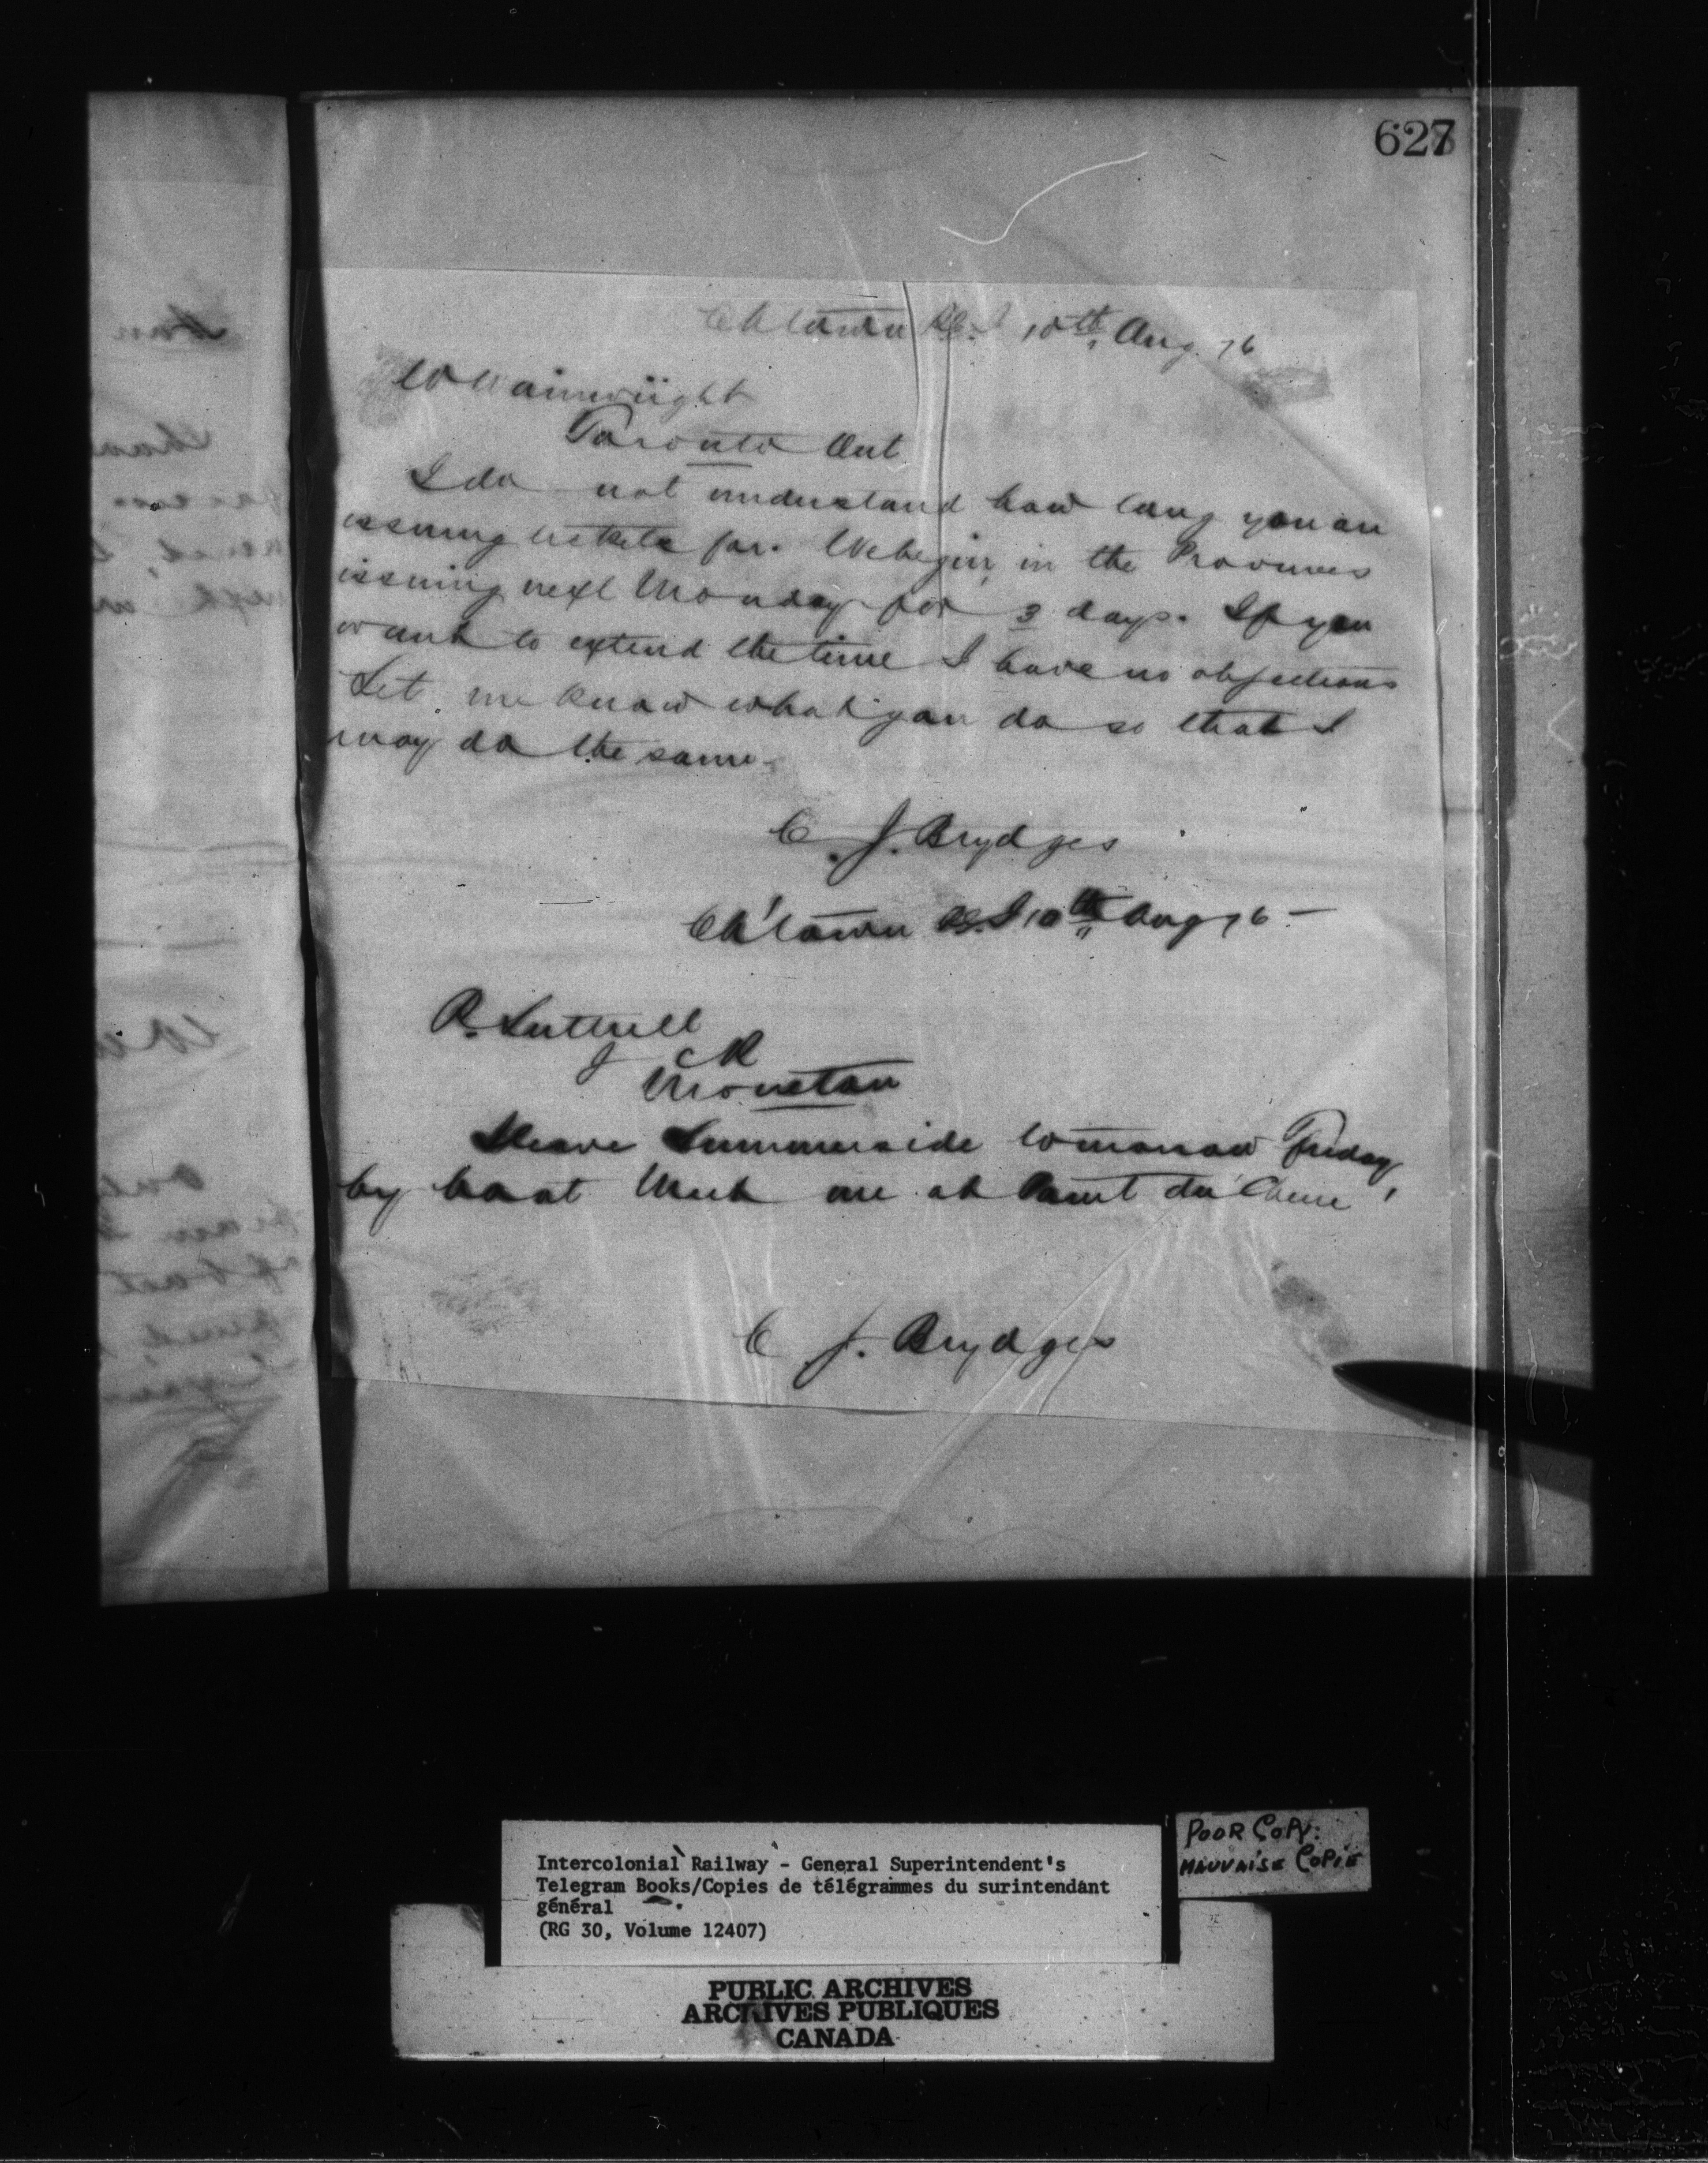 627
Ch'town P.E.I 10th Aug. 76
W Wainwright
Toronto Ont
I do not understand how long you are
issuing tickets for. We begin in the Provinces
issuing next Monday for 3 days. If you
want to extend the time I have no objections
Let me know what you do so that I
may do the same.
C. J. Brydges
Ch'town P.E.I 10th Aug 76 -
R. Luttrell
Moncton
Leave Summerside tomorrow Friday,
by boat Meet me at Point du Chene
C J. Brydges
POOR COPY:
MAUVAISE COPIE
Intercolonial Railway - General Superintendent's
Telegram Books/Copies de télégrammes du surintendant
général
(RG 30, Volume 12407)
PUBLIC ARCHIVES
ARCHIVES PUBLIQUES
CANADA